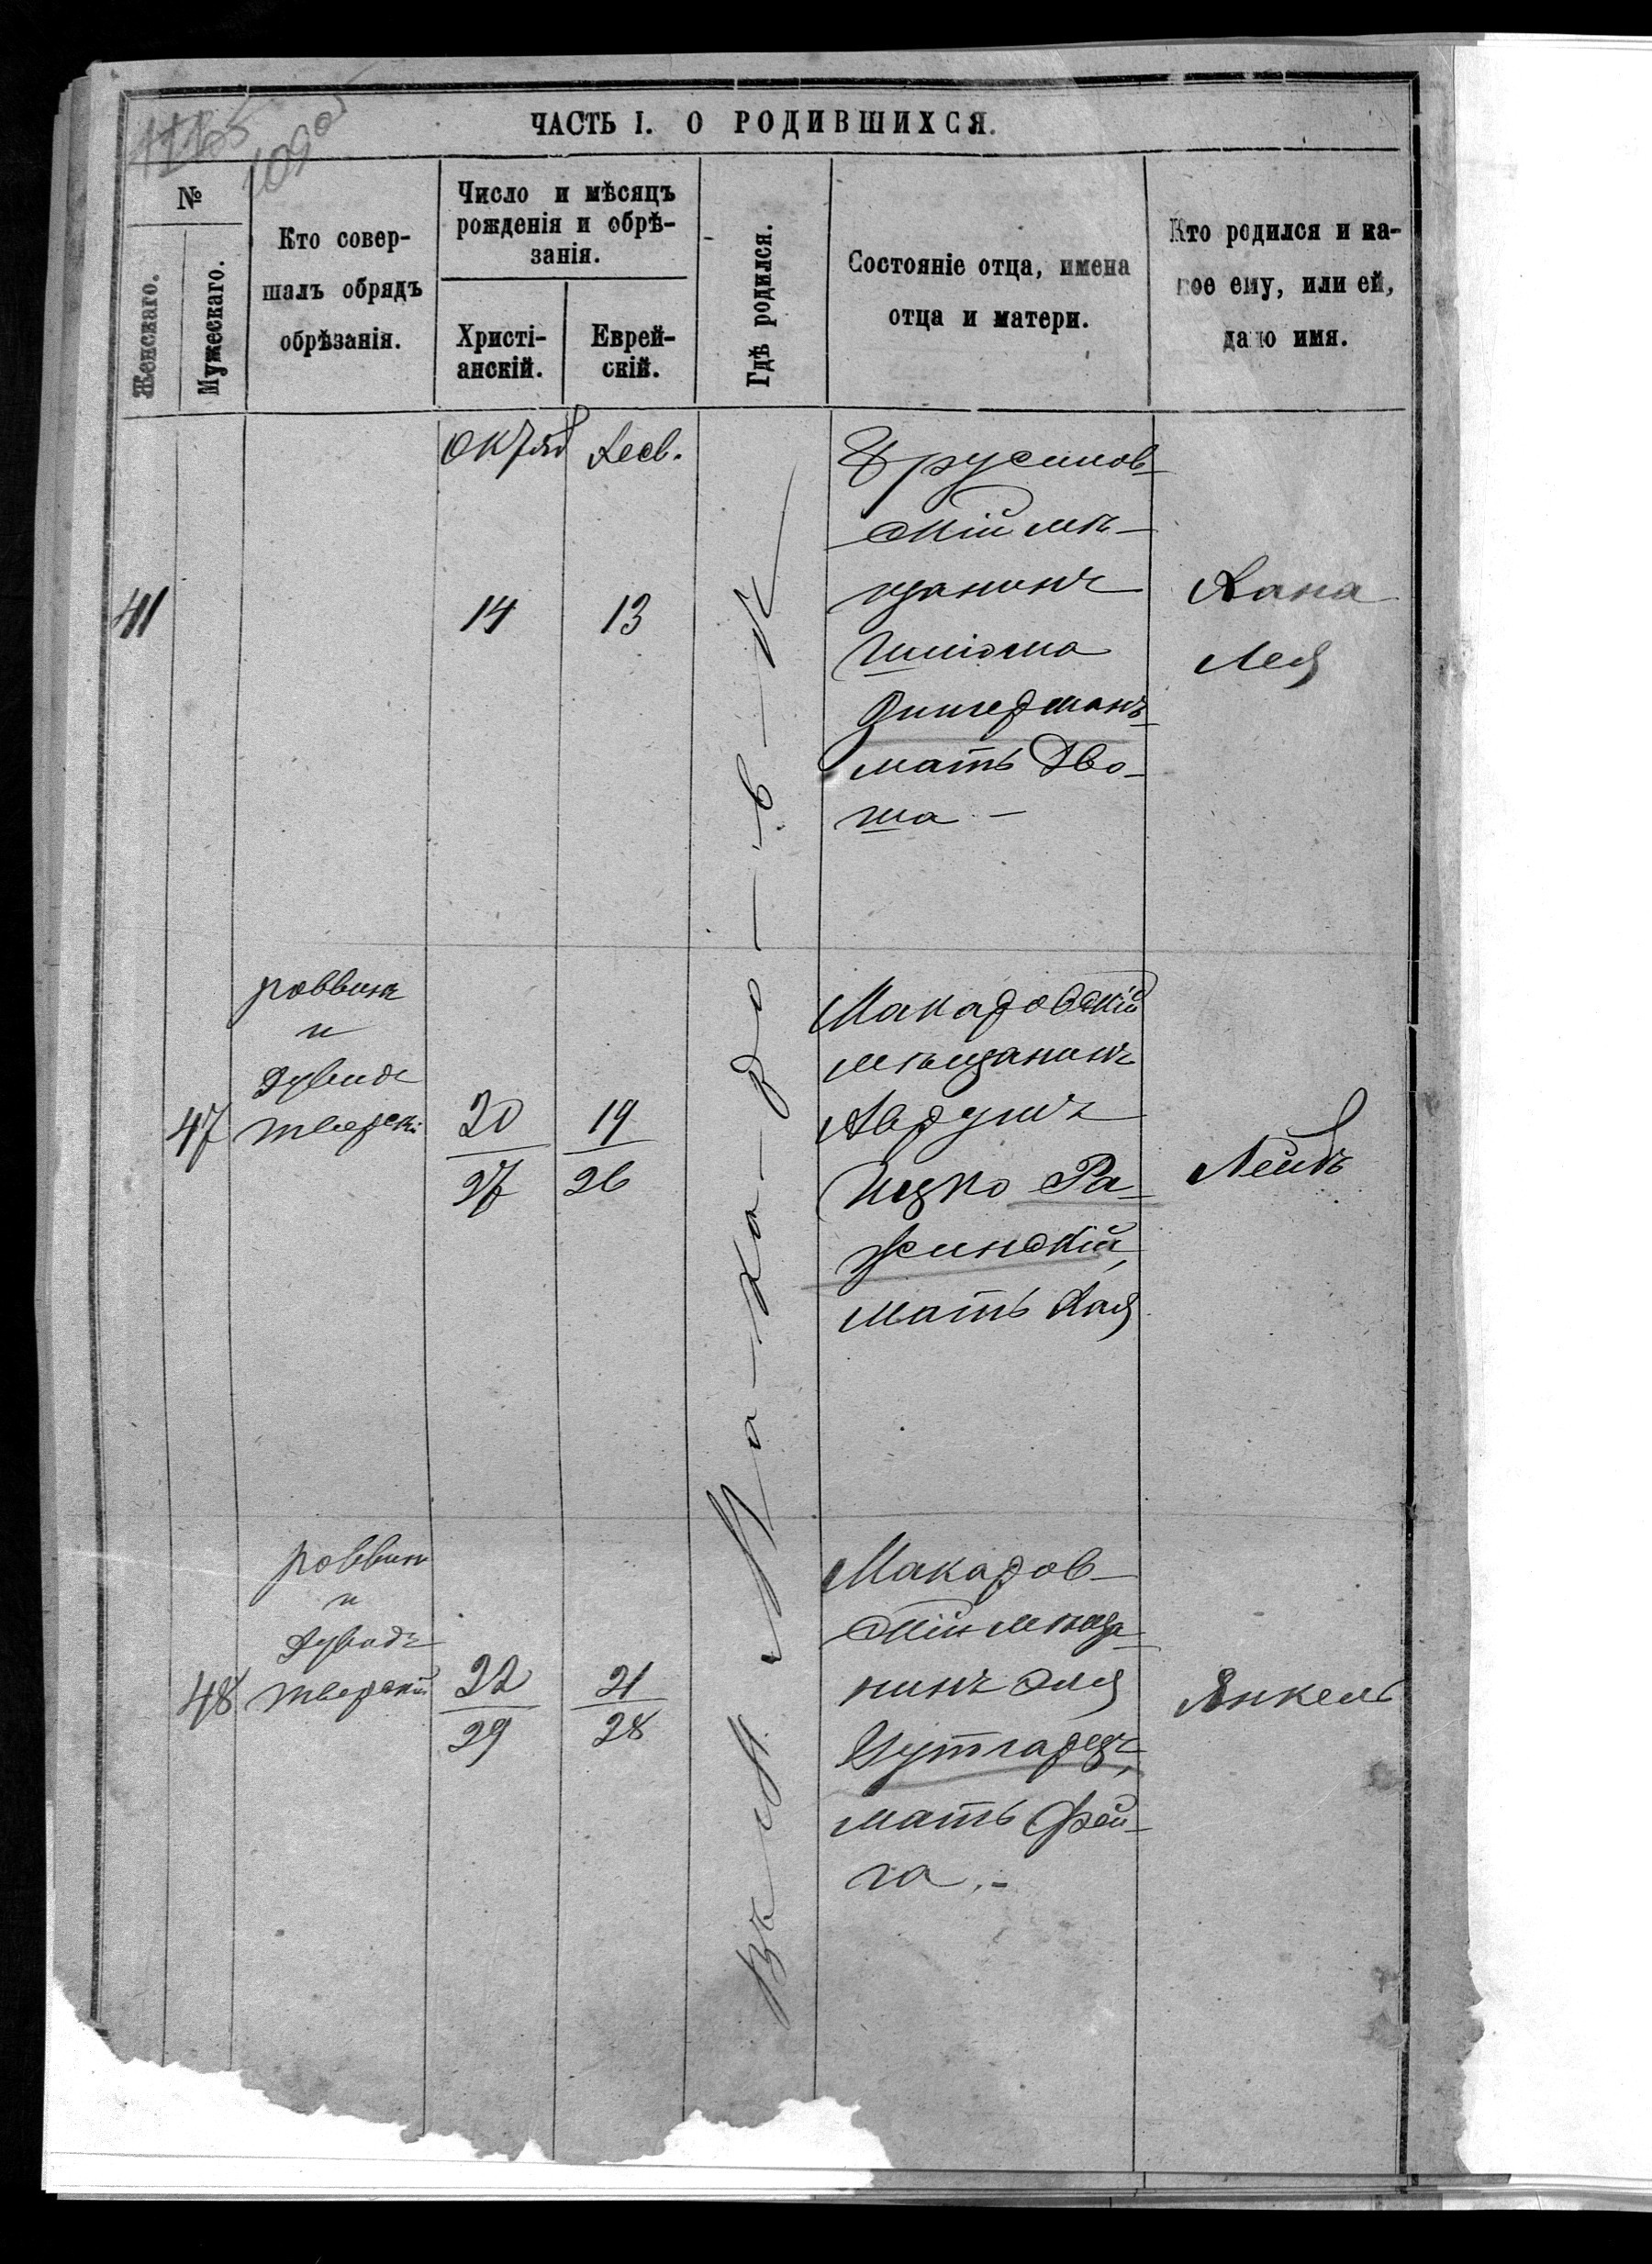 109 об
ЧАСТЬ I. О РОДИВШИХСЯ.
№
Женскаго.
Мужескаго.
Кто совер-
шалъ обрядъ
обрѣзанія.
Число и мѣсяцъ
рожденія и обрѣ-
занія.
Христі-
анскій.
Еврей-
скій.
Гдѣ родился.
Состояніе отца, имена
отца и матери.
Кто родился и ка-
кое ему, или ей,
дано имя.
Въ М. Ма-ка-ро-в-ѣ
Октяб
Хесв.
41
14
13
Брусилов-
скій мѣ-
щанинъ
Шліома
Зингерманъ
мать Дво-
ша -
Хана
Лея
47
раввинъ
и
Дувидъ
Тверскі
20
27
19
26
Макаровскій
мѣщанинъ
Аврумъ
Ицко Ра-
жинскій,
мать Хая
Лейбъ
48
раввинъ
и
Дувидъ
Тверскій
22
29
21
28
Макаров-
скій мѣща-
нинъ Эля
Гутгарцъ,
мать Фей-
га.-
Янкель